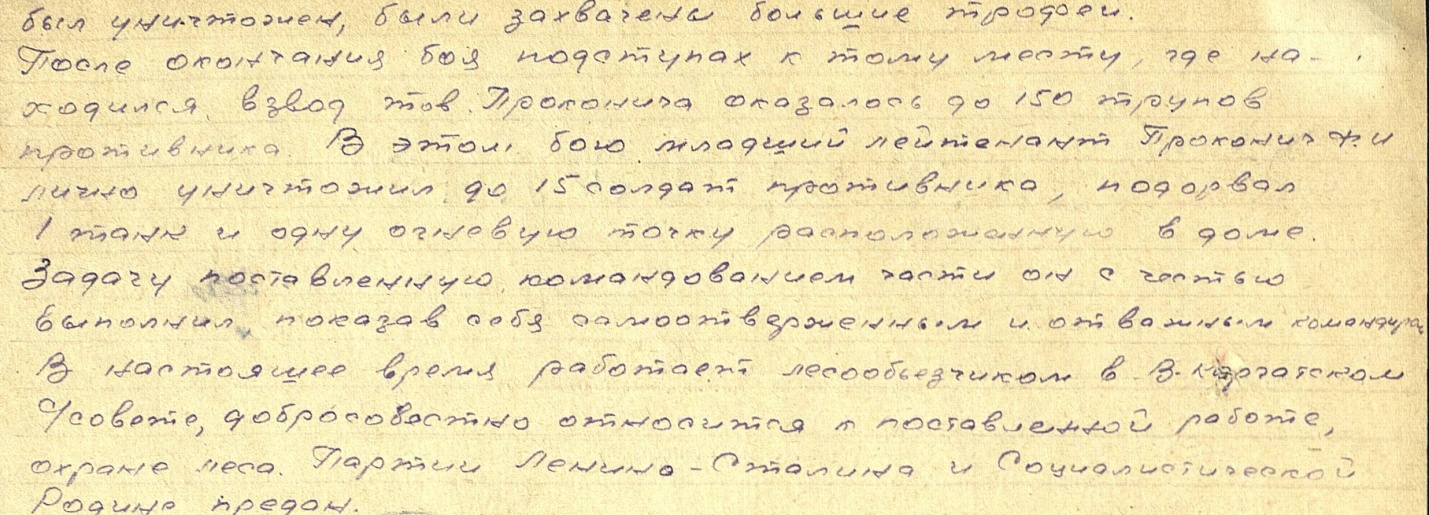 был уничтожен, были захвачены большие трофеи.
После окончания боя подступах к тому месту, где на-
ходился взвод тов. Проконича оказалось до 150 трупов
противника. В этом бою младший лейтенант Проконич Ф.И
лично уничтожил до 15 солдат противника, подорвал
1 танк и одну огневую точку расположенную в доме.
Задачу поставленную командованием части он с честью
выполнил, показав себя самоотверженным и отважным командиром
В настоящее время работает лесообьезчиком в В-Каргатском
с/совете, добросовестно относится к поставленной работе,
охране леса. Партии Ленина-Сталина и Социалистической
Родине предан.